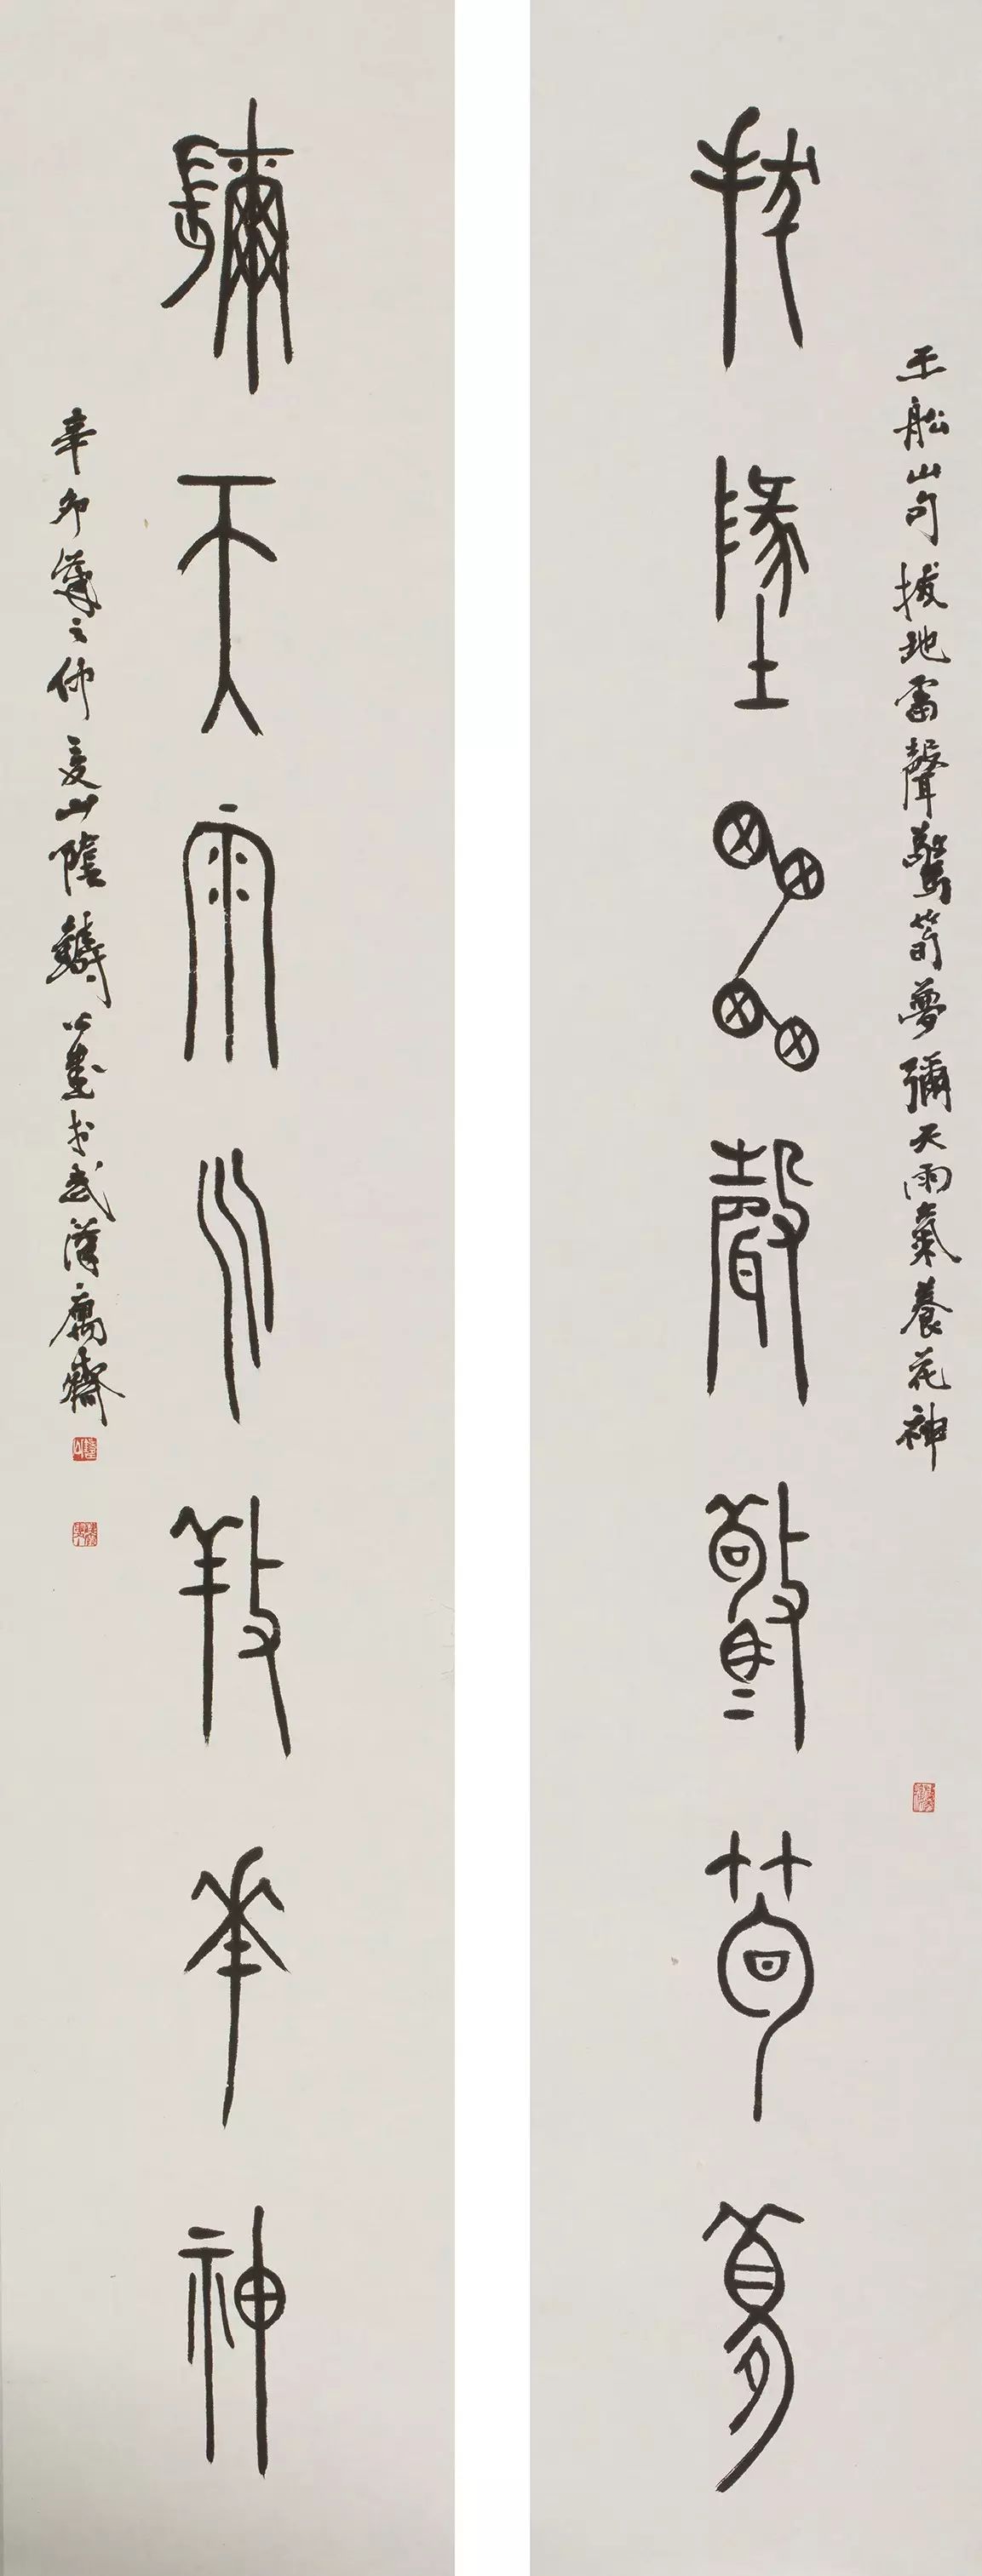 拔地雷聲驚筍夢
王船山句拔地雷聲驚筍夢彌天雨氣養花神
彌天雨气養華神
辛卯
山陰
公書於武漢
齋